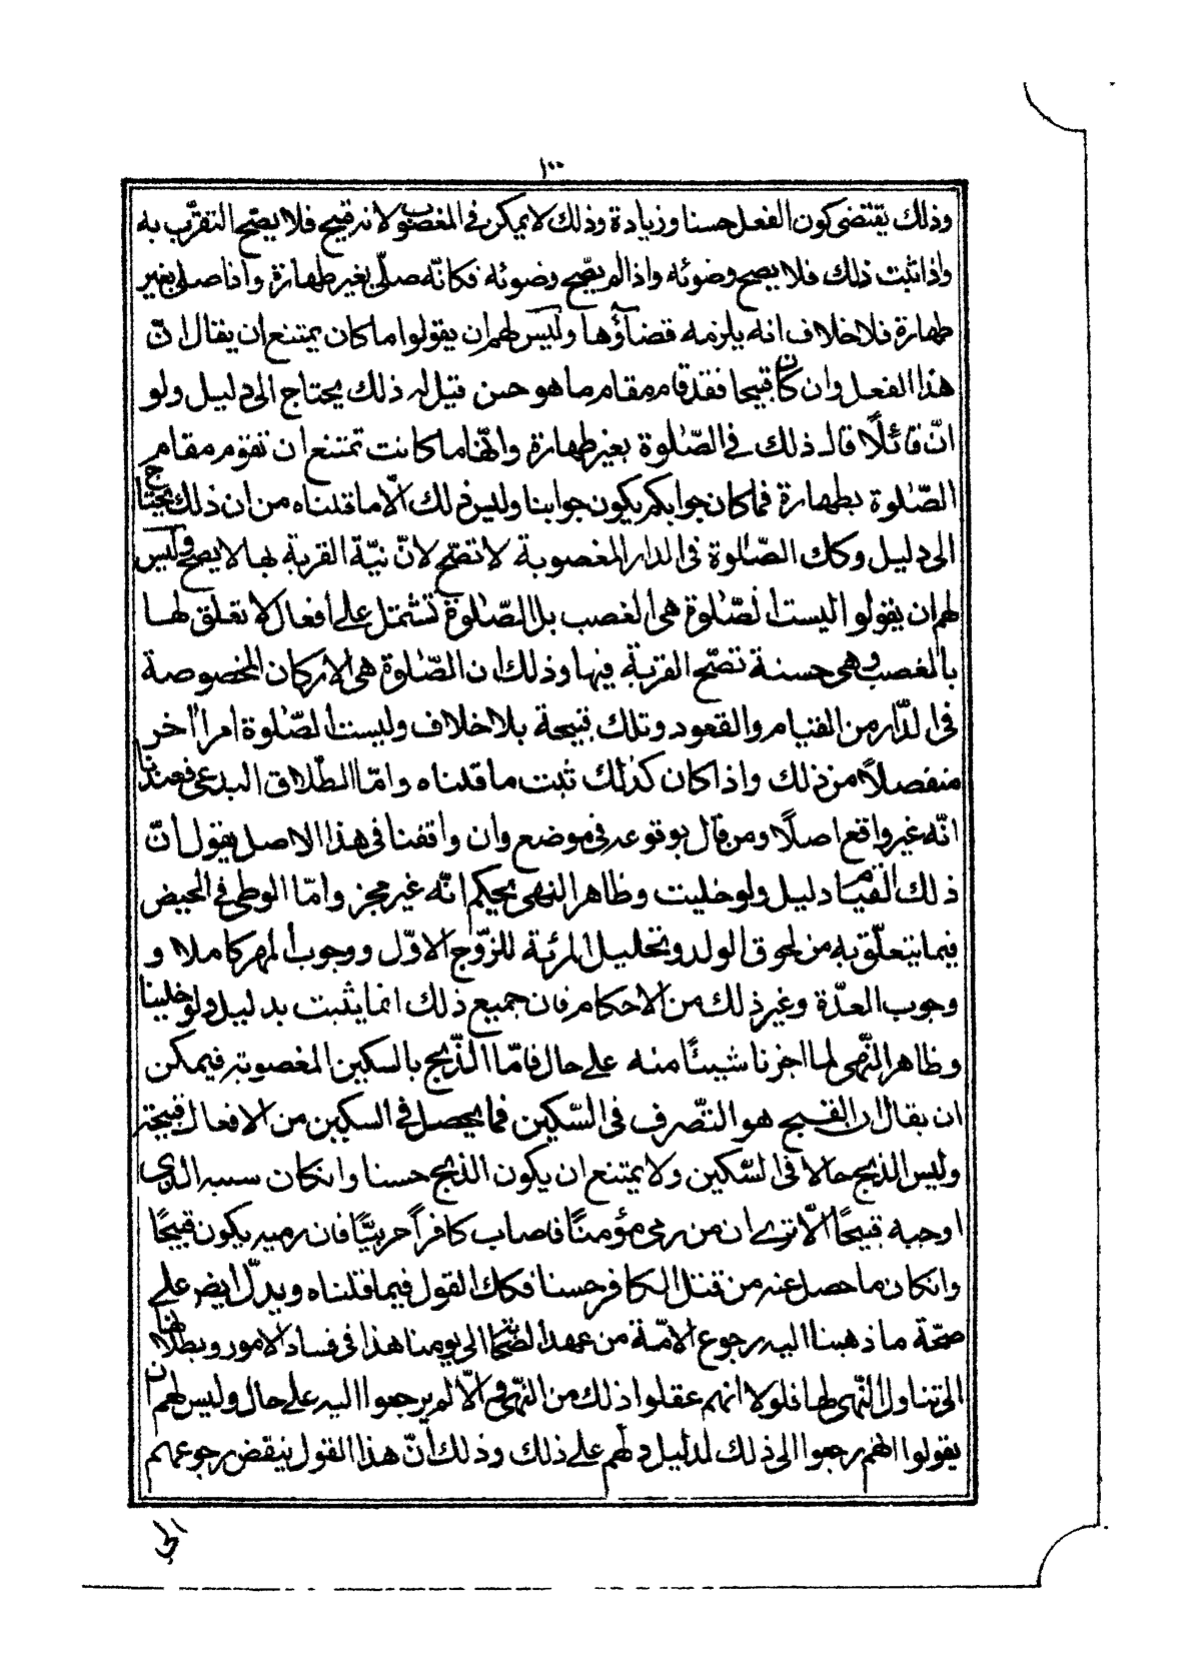 ١٠٠
وذلك يقتضى كون الفعل حسنا وزيادة وذلك لا يمكن فى المغصوب لانه قبيح فلا يصّح التقرّب به
واذا ثبت ذلك فلا يصح وضوئه واذا لم يصّح وضوئه فكانّه صلّى بغير طهارة واذا صلى بغير
طهارة فلا خلاف انه يلزمه قضاؤها وليس لهم ان يقولوا ما كان يمتنع ان يقال انّ
هذا الفعل وان كان قبيحا فقد قام مقام ما هو حسن قيل له ذلك يحتاج الى دليل ولو
انّ قائلًا قال ذلك فى الصّلوة بغير طهارة وانّها ما كانت تمتنع ان تقوم مقام
الصّلوة بطهارة فما كان جوابكم يكون جوابنا وليس ذلك الّا ما قلناه من ان ذلك يحتاج
الى دليل وكك الصّلوة فى الدار المغصوبة لا تصّح لانّ نيّة القربة بها لا يصح وليس
لهم ان يقولوا اليست الصّلوة هى الغصب بل الصّلوة تشتمل على افعال لا تعلق لها
بالغصب وهى حسنة تصّح القربة فيها وذلك ان الصّلوة هى الاركان المخصوصة
فى الدّار من القيام والقعود وتلك قبيحة بلا خلاف وليست الصّلوة امرا اخر
منفصلًا من ذلك واذا كان كذلك ثبت ما قلناه وامّا الطّلاق البدعى فعندنا
انّه غير واقع اصلًا ومن قال بوقوعه فى موضع وان واقفنا فى هذا الاصل يقول انّ
ذلك لقيام دليل ولو خليت وظاهر النهى يحكم انّه غير مجز وامّا الوطى فى الحيض
فيما يتعلّق به من لحوق الولد وتحليل المرئة للزّوج الاوّل ووجوب المهر كاملا و
وجوب العدّة وغير ذلك من الاحكام فان جميع ذلك انما يثبت بدليل ولو خلينا
وظاهر النّهى لما اجزنا شيئًا منه على حال فامّا الذّبح بالسكين المغصوبة فيمكن
ان يقال ان القبيح هو التصّرف فى السّكين فما يحصل فى السكين من الافعال قبيحة
وليس الذبح حالا فى السّكين ولا يمتنع ان يكون الذبح حسنا وانكان سببه الذى
اوجبه قبيحًا الّا ترى ان من رمى مؤمنًا فاصاب كافراً حربيًّا فان رميه يكون قبيحًا
وانكان ما حصل عنه من قتل الكافر حسنا فكك القول فيما قلناه ويدلّ ايض على
صحّة ما ذهبنا اليه رجوع الامّة من عهد الصّحابة الى يومنا هذا فى فساد الامور وبطلانها
الى تناول النّهى لها فلولا انهم عقلوا ذلك من النّهى والّا لم يرجعوا اليه على حال وليس لهم ان
يقولوا انهم رجعوا الى ذلك لدليل دلّهم على ذلك وذلك انّ هذا القول ينقض رجوعهم
الى